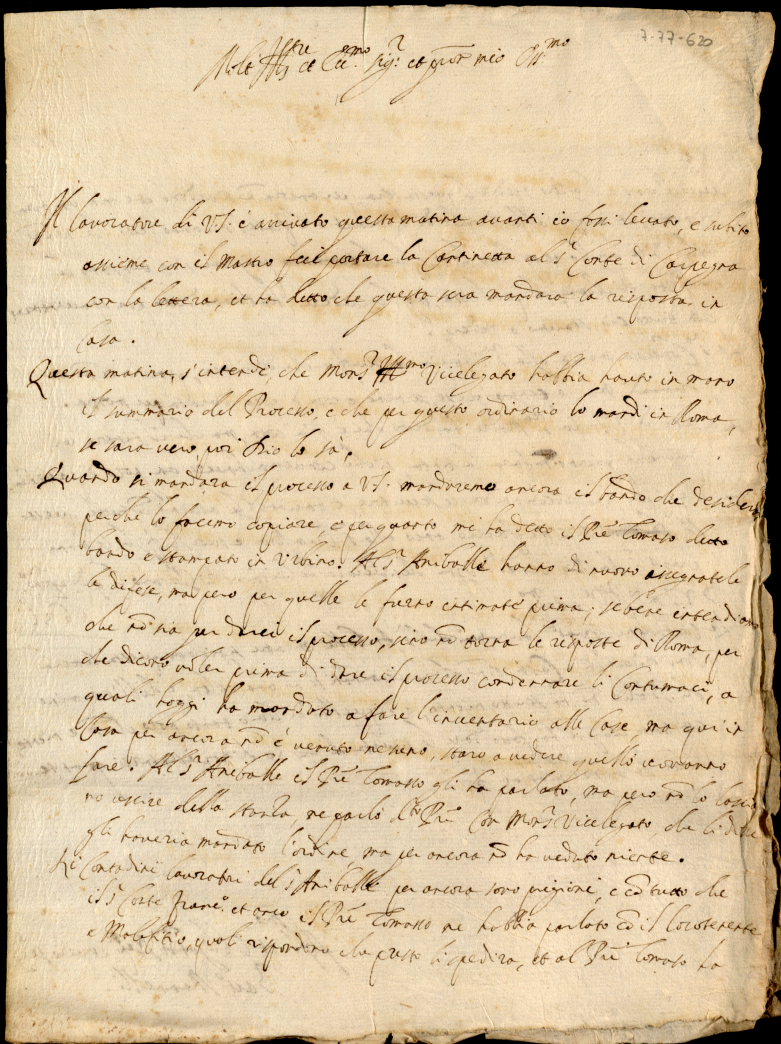 7-77-620
Molt Ill.stre et Ecc.mo Sig.r et p̃ron mio Oss.mo
Il lavoratore di V.S. è arrivato questa matina avanti ĩo fossi levato, e subito
assieme con il Mastro feci portare la Cantinetta al S.r Conte di Carpegna
con la lettera, et ha detto che questa sera mandarà la risposta in
Casa.
Questa matina, s'intende, che Mons.r Ill.mo Vicelegato habbia hauto in mano
il summario del Processo, e che per questo ordinario lo mandi in Roma,
se sara vero, poi Dio lo sà,
Quando si mandarà il processo a V.S. mandaremo ancora il bando che desidera
perche lo facemo copiare, e per quanto mi ha detto il P̃re Tomaso detto
bando è stampato in Urbino. Al S.r Aniballe hanno di nuovo assegnateli
le difese, ma pero per quelle le furno intimate prima; sebene intendiamo
che nõ sia per darci il processo, sino nõ torna le risposte di Roma, per
che dicono voler prima di dare il processo condennare li Contumaci, a
quali hoggi ha mandato a fare l'inventario alle Case, ma qui in
Casa per ancora nõ è venuto nesuno, staro a vedere quello voranno
fare. Al S.r Aniballe il P̃re Tomasso gli ha parlato, ma pero nõ lo lassa
no uscire della stanza, ne parlò d.to P̃re Con Mons.r Vicelegato che li disse
gli haveria mandato l'ordine, ma per ancora nõ ha veduto niente.
Li Contadini lavoratori del S.r Aniballe per ancora sono prigioni, e cõ tutto che
il S.r Conte Franc.o et anco il P̃re Tomasso ne habbia parlato cõ il locotenente
e Malefitio, quali rispondono che presto li spedira, et al P̃re Tomaso ha